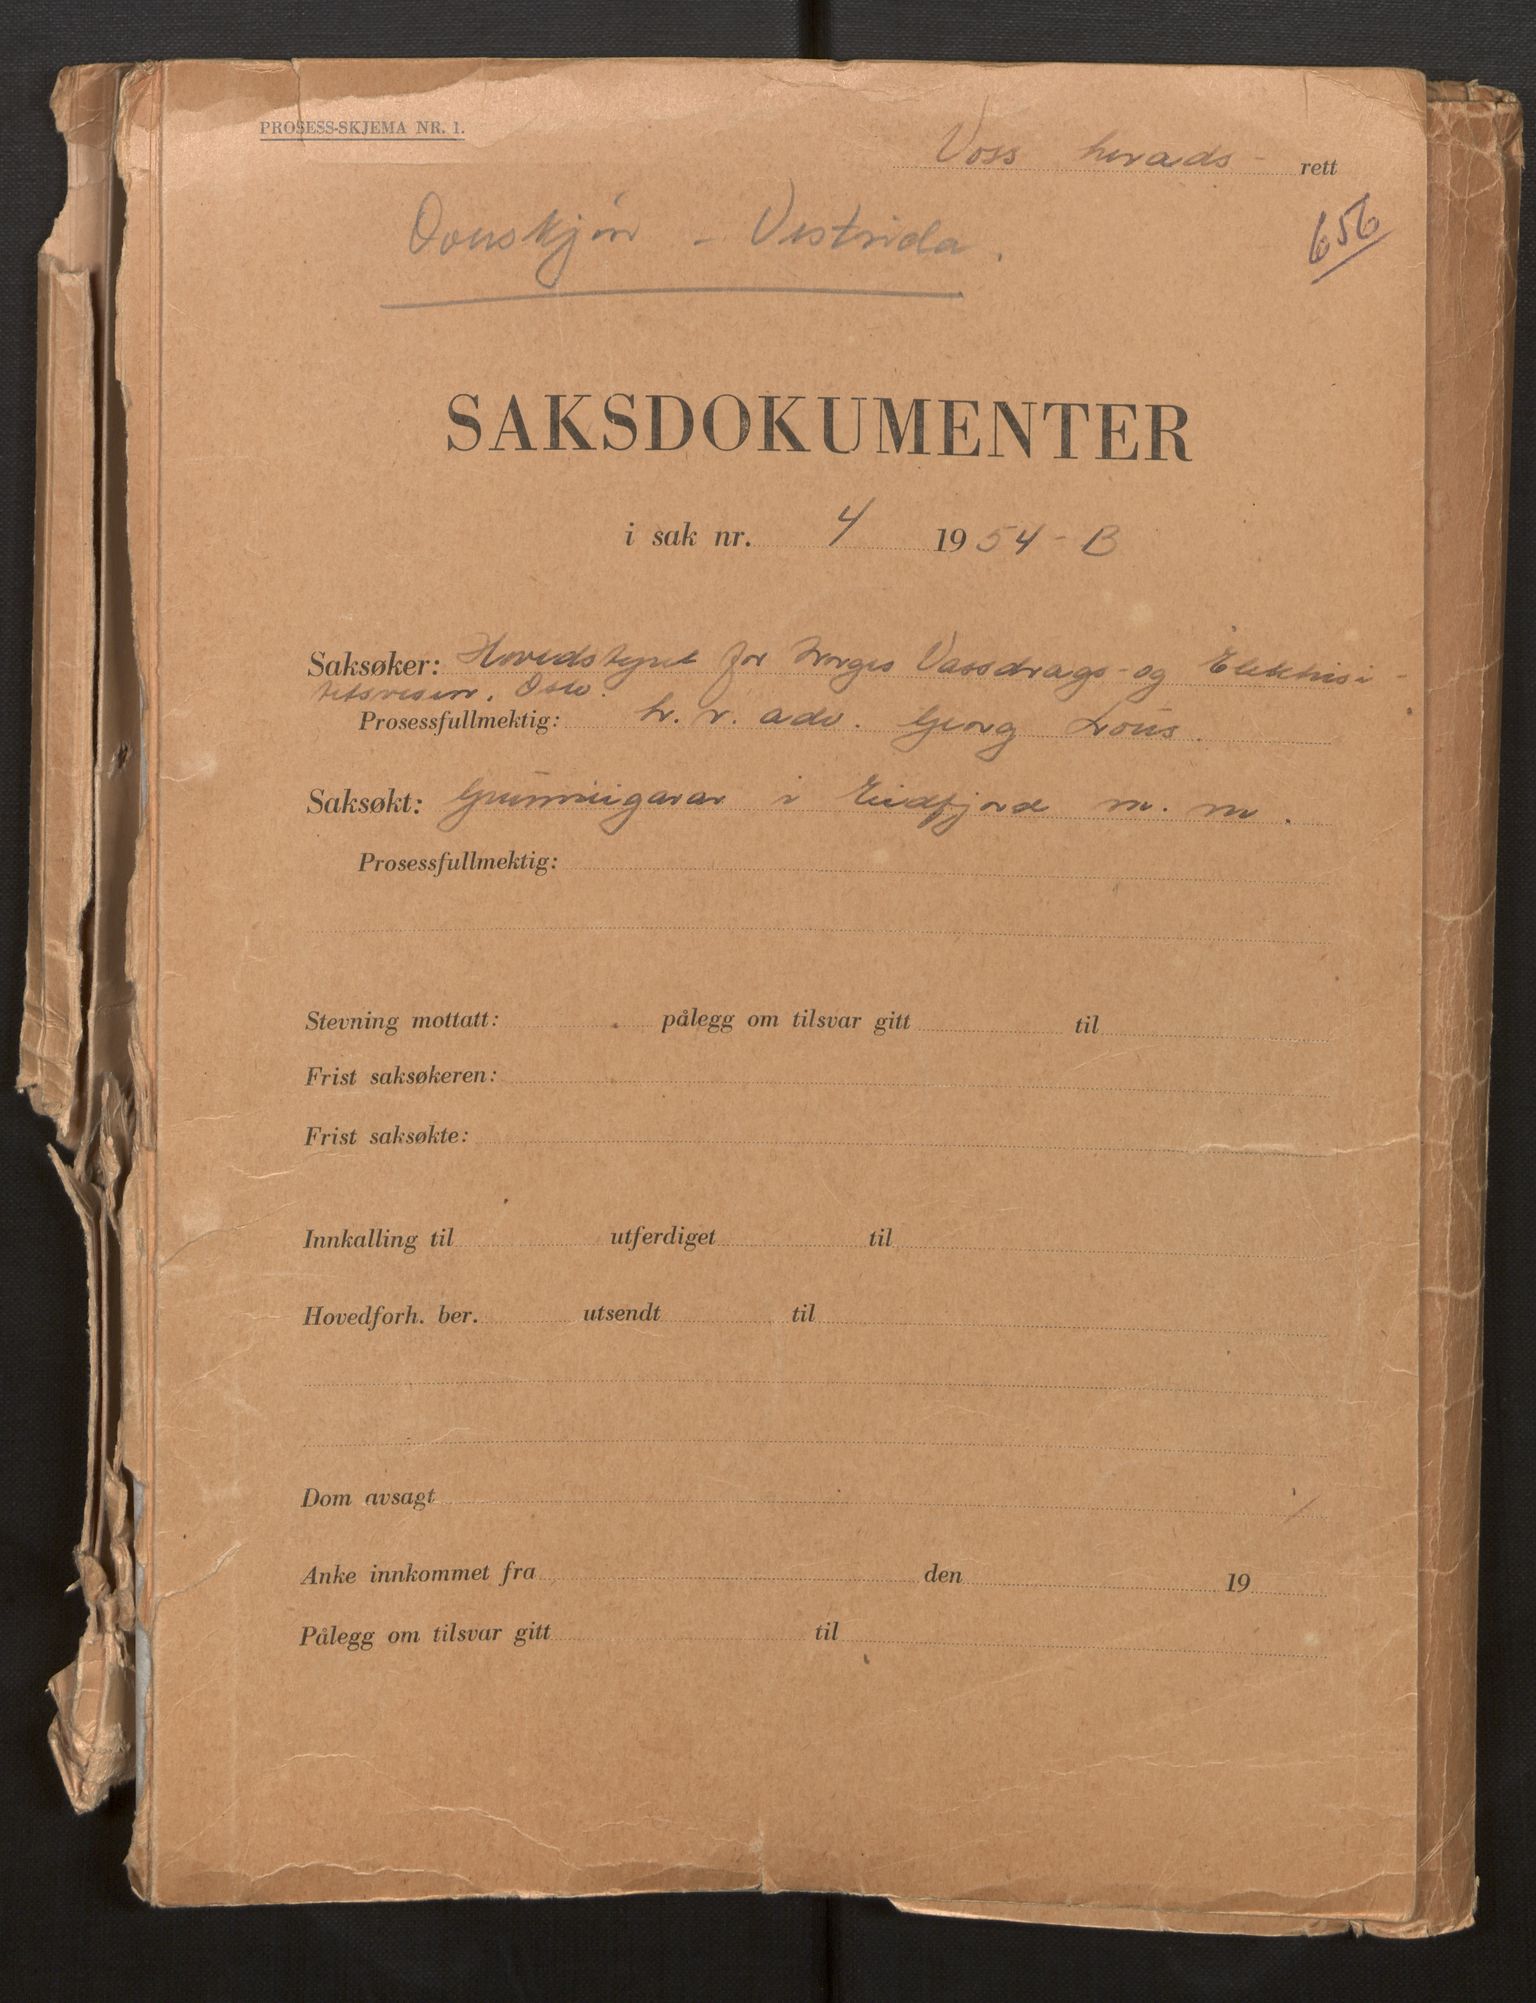 PROSESS-SKJEMA NR. 1.
Voss herads- rett
Overskjön - Vestsida.
656
SAKSDOKUMENTER
i sak nr. 4 1954-B
Saksøker: Hovedstyret for Norges Vassdrags- og Elektrisi-
tetsvesen, Oslo.
Prosessfullmektig: h. r. adv. Georg Lous.
Saksøkt: Grunneigarar i Eidfjord m. m.
Prosessfullmektig:
Stevning mottatt: pålegg om tilsvar gitt til
Frist saksøkeren:
Frist saksøkte:
Innkalling til utferdiget til
Hovedforh. ber. utsendt til
Dom avsagt
Anke innkommet fra den 19
Pålegg om tilsvar gitt til